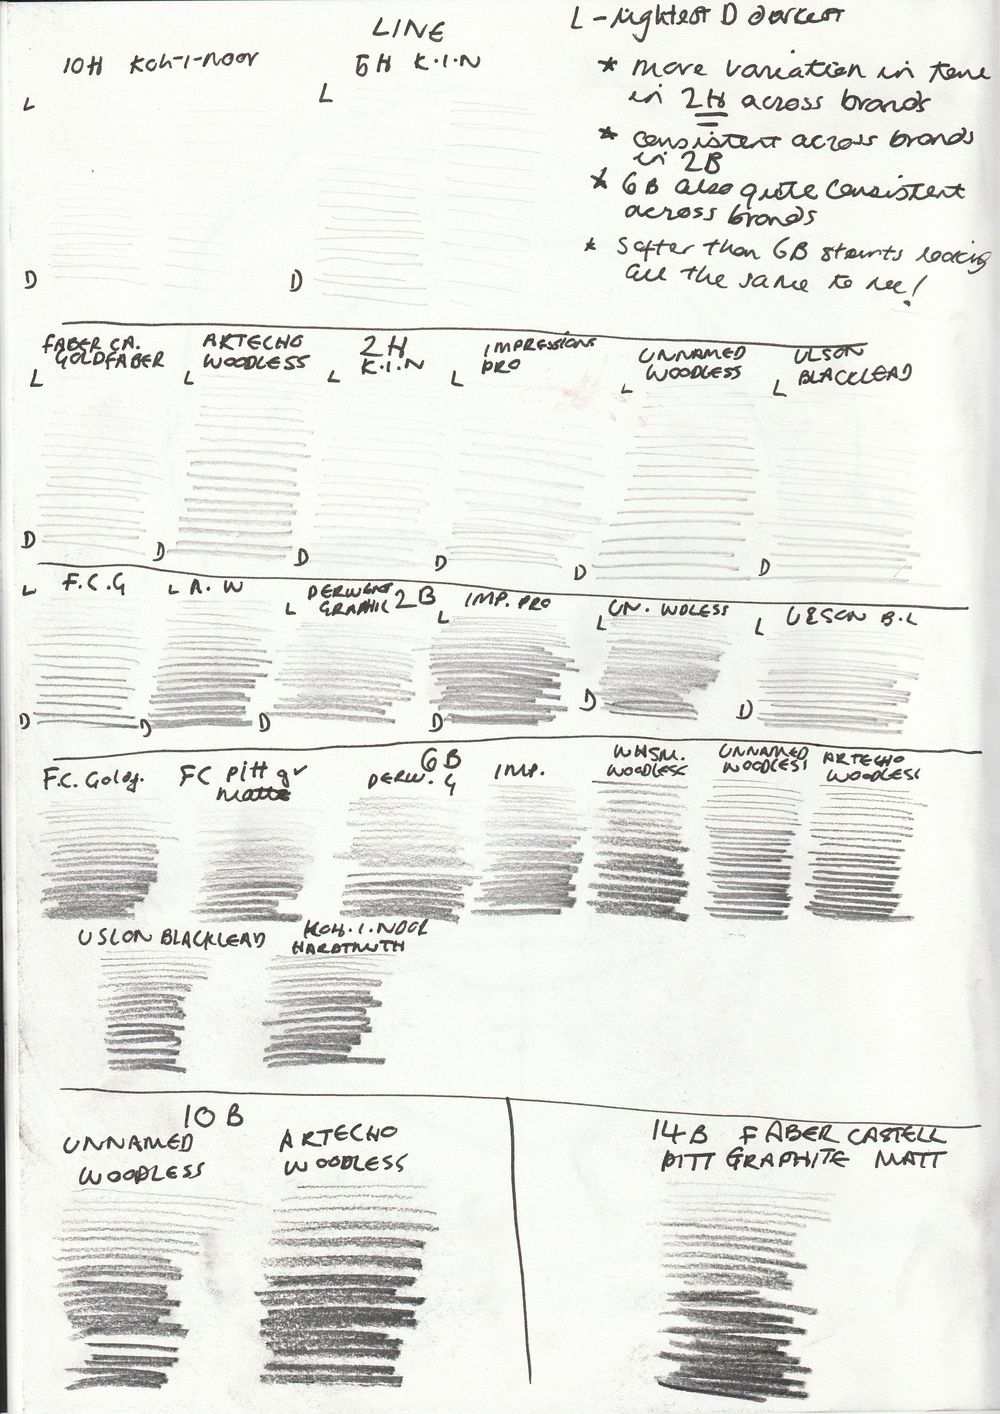 LINE
L - lightest D darkest
10H Koh-i-noor
5H K.I.N
L
L
* more variation in tone
in 2H across brands
* consistent across brands
in 2B
* 6B also quite consistent
across brands
* Softer than 6B starts looking
all the same to me!
D
D
FABER CA.
GOLDFABER
ARTECHO
WOODLESS
2H
K.I.N
IMPRESSIONS
PRO
UNNAMED
WOODLESS
ULSON
BLACKLEAD
L
L
L
L
L
L
D
D
D
D
D
D
2B
L F.C.G
L A.W
L DERWENT
GRAPHIC
L IMP. PRO
L UN. WDLESS
L USLON B.L
D
D
D
D
D
D
6B
F.C. Goldf.
FC Pitt gr
matte
DERW. G
IMP.
WHSM.
WOODLESS
UNNAMED
WOODLESS
ARTECHO
WOODLESS
USLON BLACKLEAD
KOH.I.NOOR
HARDTMUTH
10B
UNNAMED
WOODLESS
ARTECHO
WOODLESS
14B FABER CASTELL
PITT GRAPHITE MATT